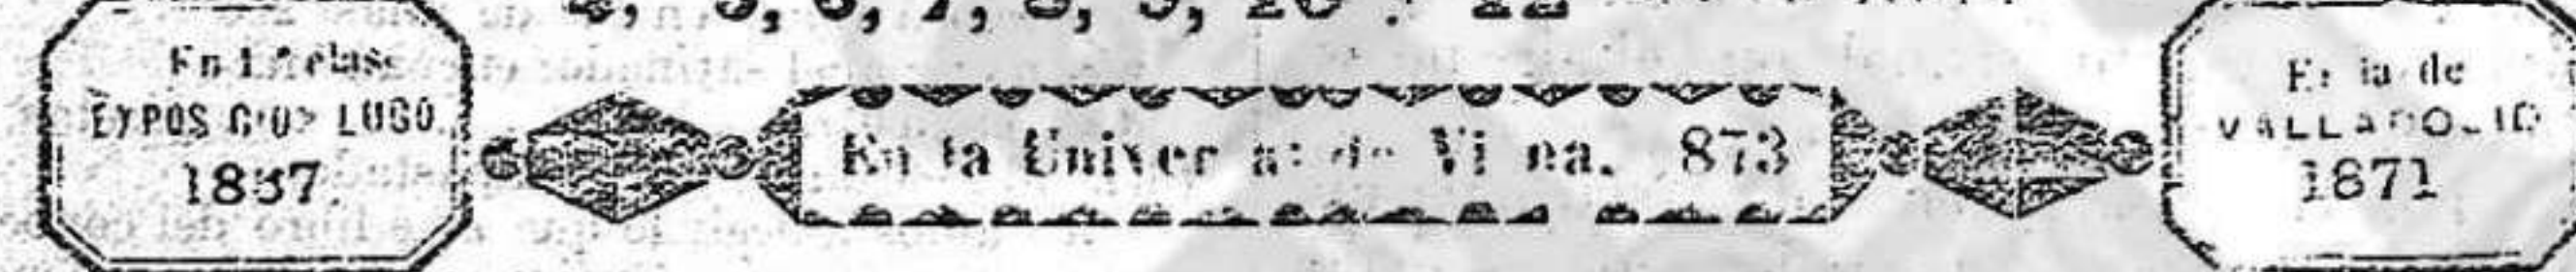 4, 5, 6, 7, 8, 9, 10 y 12
En 1.ª clase
EXPOSICION LUGO
1867.
En la Universal de Viena. 873
Feria de
VALLADOLID
1871